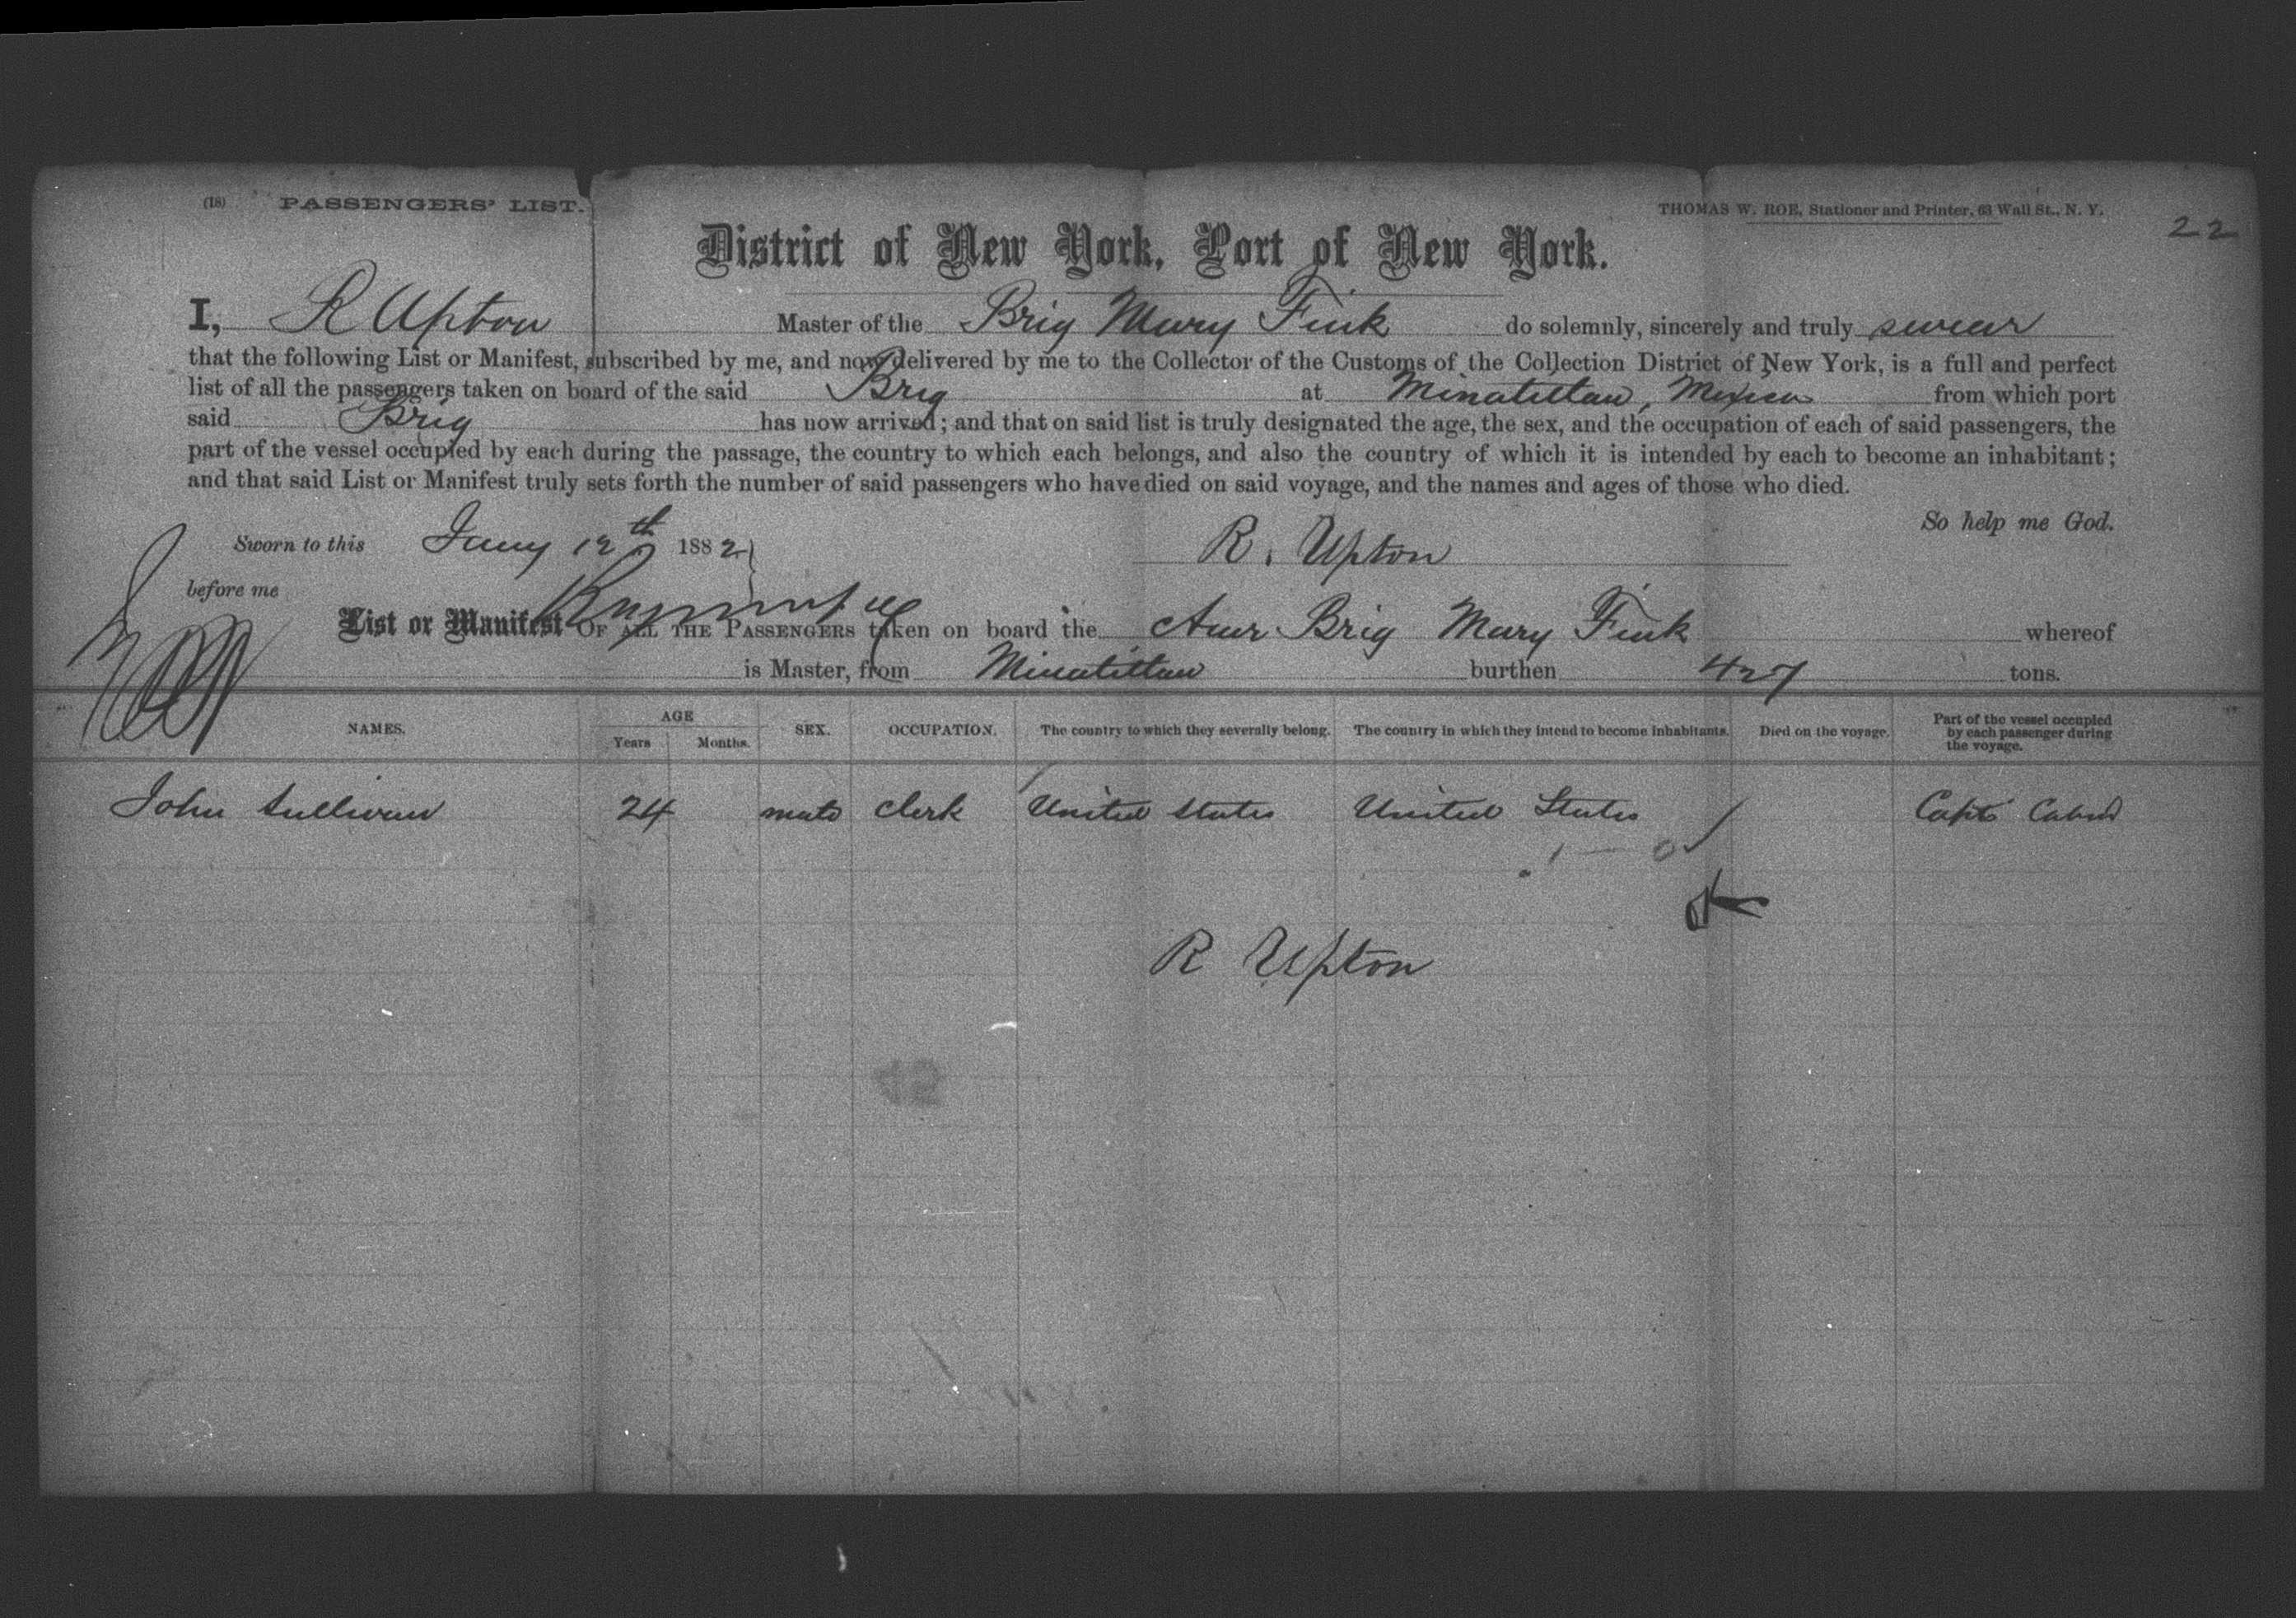 (18) PASSENGERS' LIST.
THOMAS W. ROE, Stationer and Printer, 63 Wall St., N. Y.
22
District of New York, Port of New York.
I, R Upton Master of the Brig Mary Fink do solemnly, sincerely and truly swear
that the following List or Manifest, subscribed by me, and now delivered by me to the Collector of the Customs of the Collection District of New York, is a full and perfect
list of all the passengers taken on board of the said Brig at Minatitlan, Mexico from which port
said Brig has now arrived; and that on said list is truly designated the age, the sex, and the occupation of each of said passengers, the
part of the vessel occupied by each during the passage, the country to which each belongs, and also the country of which it is intended by each to become an inhabitant;
and that said List or Manifest truly sets forth the number of said passengers who have died on said voyage, and the names and ages of those who died.
So help me God.
Sworn to this 12th 1882 R. Upton
before me
List or Manifest OF ALL THE PASSENGERS taken on board the Amr Brig Mary Fink whereof
is Master, from Minatitlan burthen 427 tons.
NAMES. AGE Years Months. SEX. OCCUPATION. The country to which they severally belong. The country in which they intend to become inhabitants. Died on the voyage. Part of the vessel occupied by each passenger during the voyage.
John Sullivan 24 male Clerk United States United States Capts Cabin
R Upton